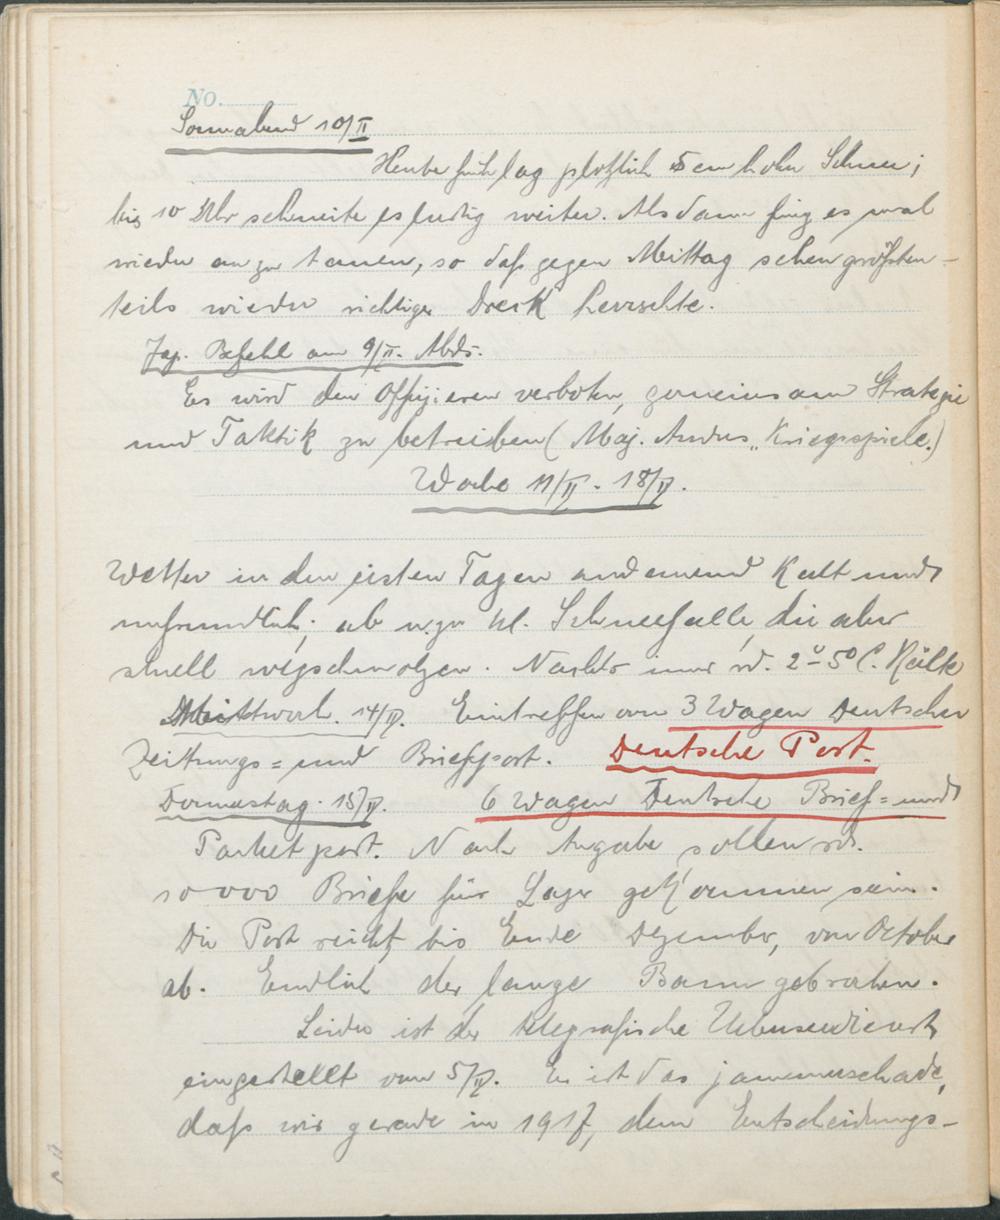 No.
Sonnabend 10/II
Heute früh lag plötzlich 5 cm hoher Schnee;
bis 10 Uhr schneite es lustig weiter. Alsdann fing es mal
wieder an zu tauen, so daß gegen Mittag schon größten-
teils wieder richtiger Dreck herrschte.
Jap. Befehl am 9/II. Abds.
Es wird den Offizieren verboten, gemeinsam Strategie
und Taktik zu betreiben (Maj. Anders „Kriegsspiele.)
Woche 11/II - 18/II.
Wetter in den ersten Tagen andauernd Kalt und
unfreundlich; ab u. zu kl. Schneefälle, die aber
schnell wegschmolzen. Nachts immer rd. 2°-5° C. Kälte
Mittwoch. 14/II. Eintreffen von 3 Wagen Deutscher
Zeitungs= und Briefpost. Deutsche Post.
Donnerstag. 15/II. 6 Wagen Deutsche Brief= und
Packetpost. Nach Angabe sollen rd.
10000 Briefe für Lager gekommen sein.
Die Post reicht bis Ende Dezember, von October
ab. Endlich der lange Bann gebrochen.
Leider ist der telegrafische Ueberseedienst
eingestellt vom 5/II. Es ist das jammerschade,
daß wir gerade in 1917, dem Entscheidungs-